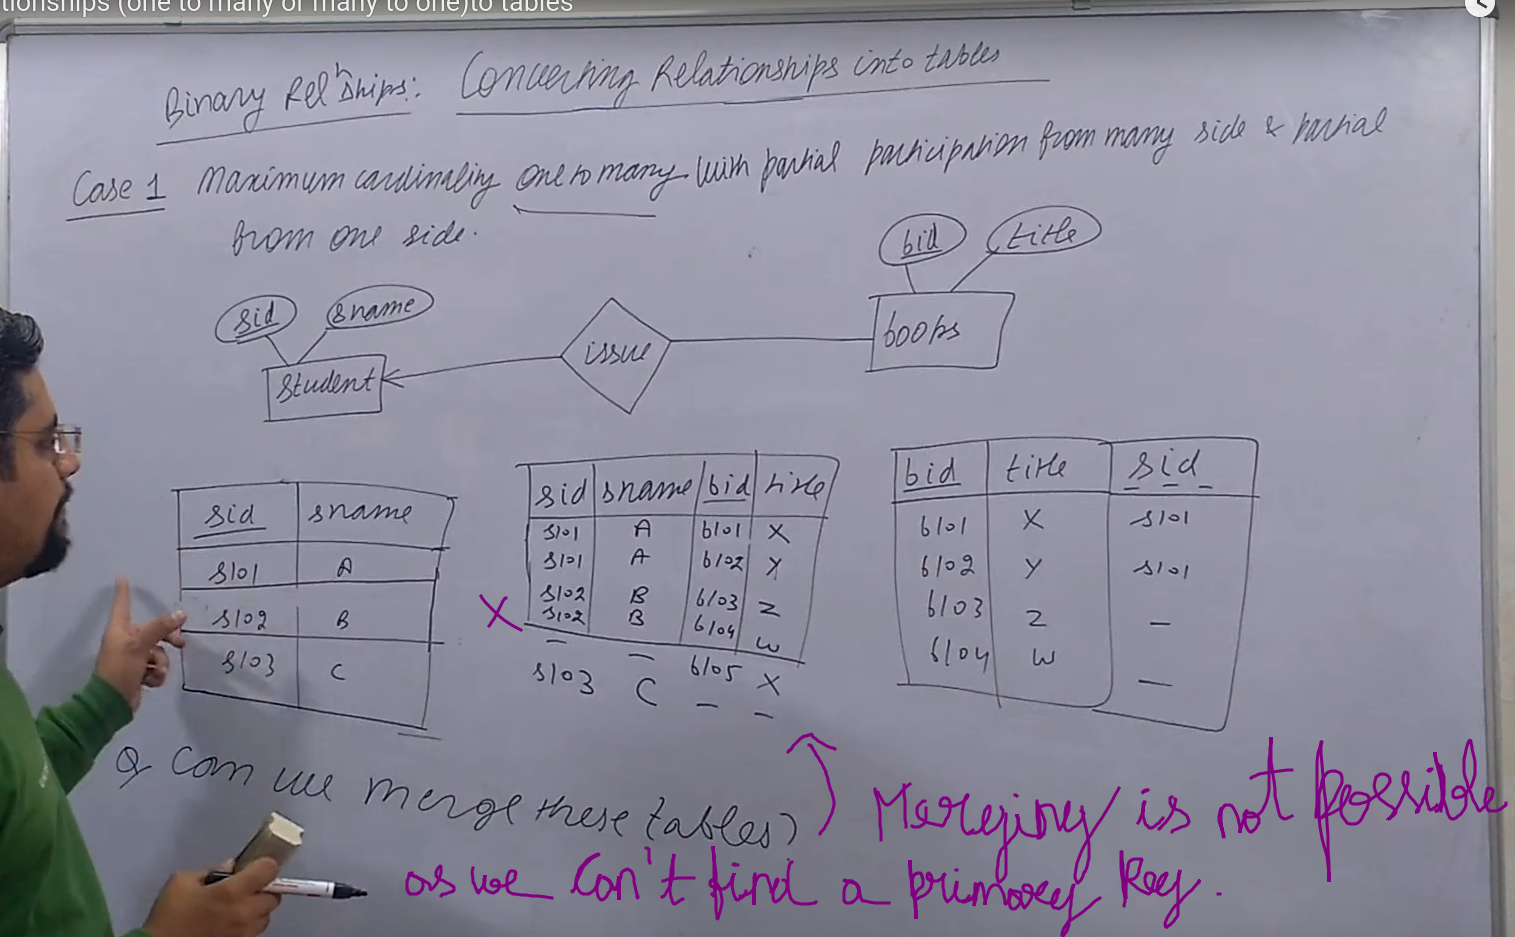 tionships (one to many or many to one)to tables
Binary Rel'ships: Converting Relationships into tables
Case 1 Maximum cardinality one to many with partial participation from many side & partial
from one side.
bid title
sid sname
student issue books
sid sname
s101 A
s102 B
s103 C
sid sname bid title
s101 A b101 X
s101 A b102 Y
s102 B b103 Z
s102 B b104 W
— — b105 X
s103 C — —
X
bid title sid
b101 X s101
b102 Y s101
b103 Z —
b104 W —
Q Can we merge these tables)
Merging is not possible
as we can't find a primary key.